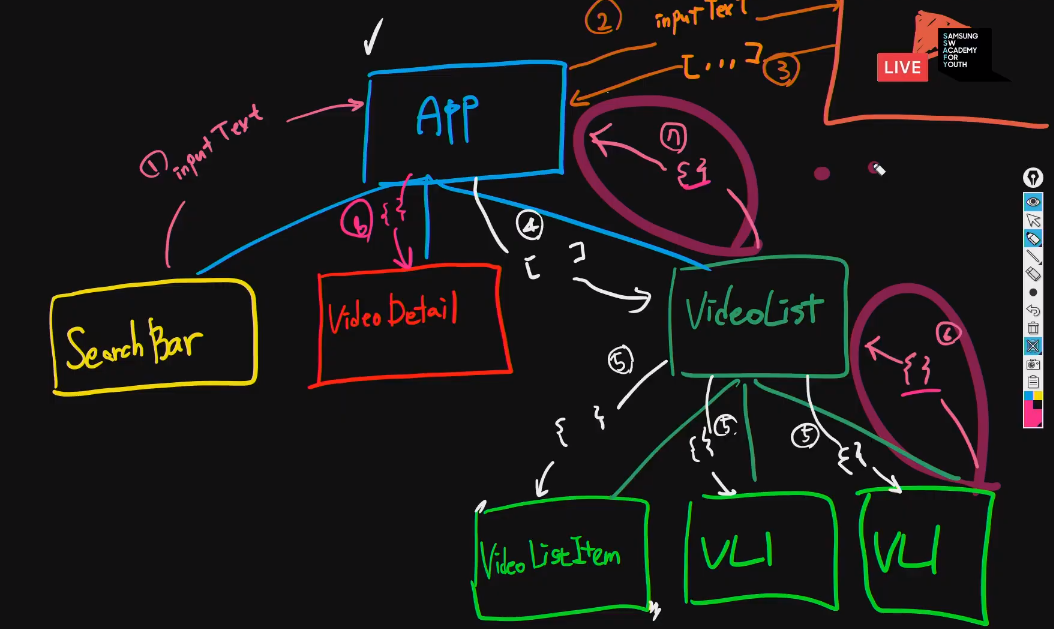 ② inputText
[...] ③
SAMSUNG
SW
ACADEMY
FOR
YOUTH
LIVE
App
① inputText
⑦
{}
{}
④
[ ]
SearchBar
VideoDetail
VideoList
⑥
{}
⑤
{ }
⑤
{}
⑤
{}
VideoListItem
VLI
VLI